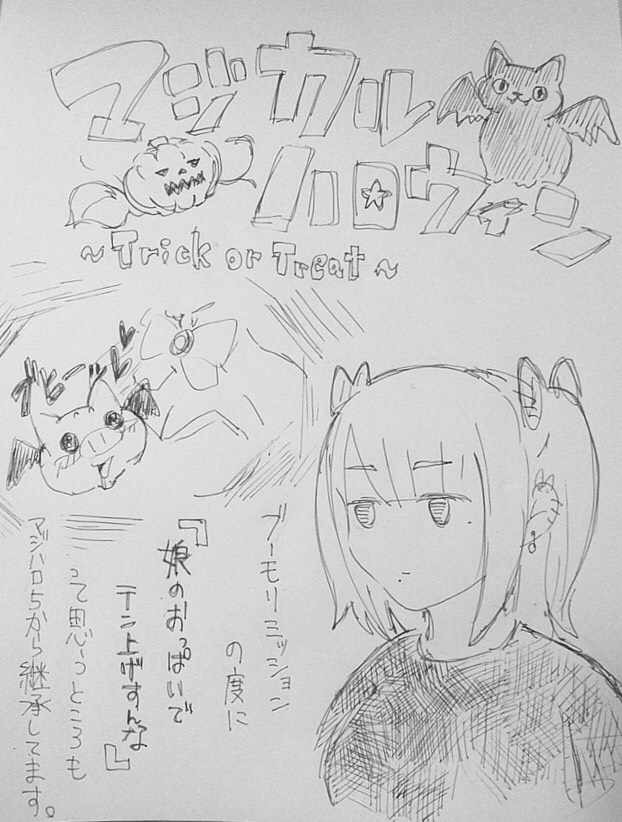 マジカル
ハロウィン
~Trick or Treat~
ブーモリミッション
の度に
『娘のおっぱいで
テン上げすんな』
って思うところも
マジハロ5から継承してます。